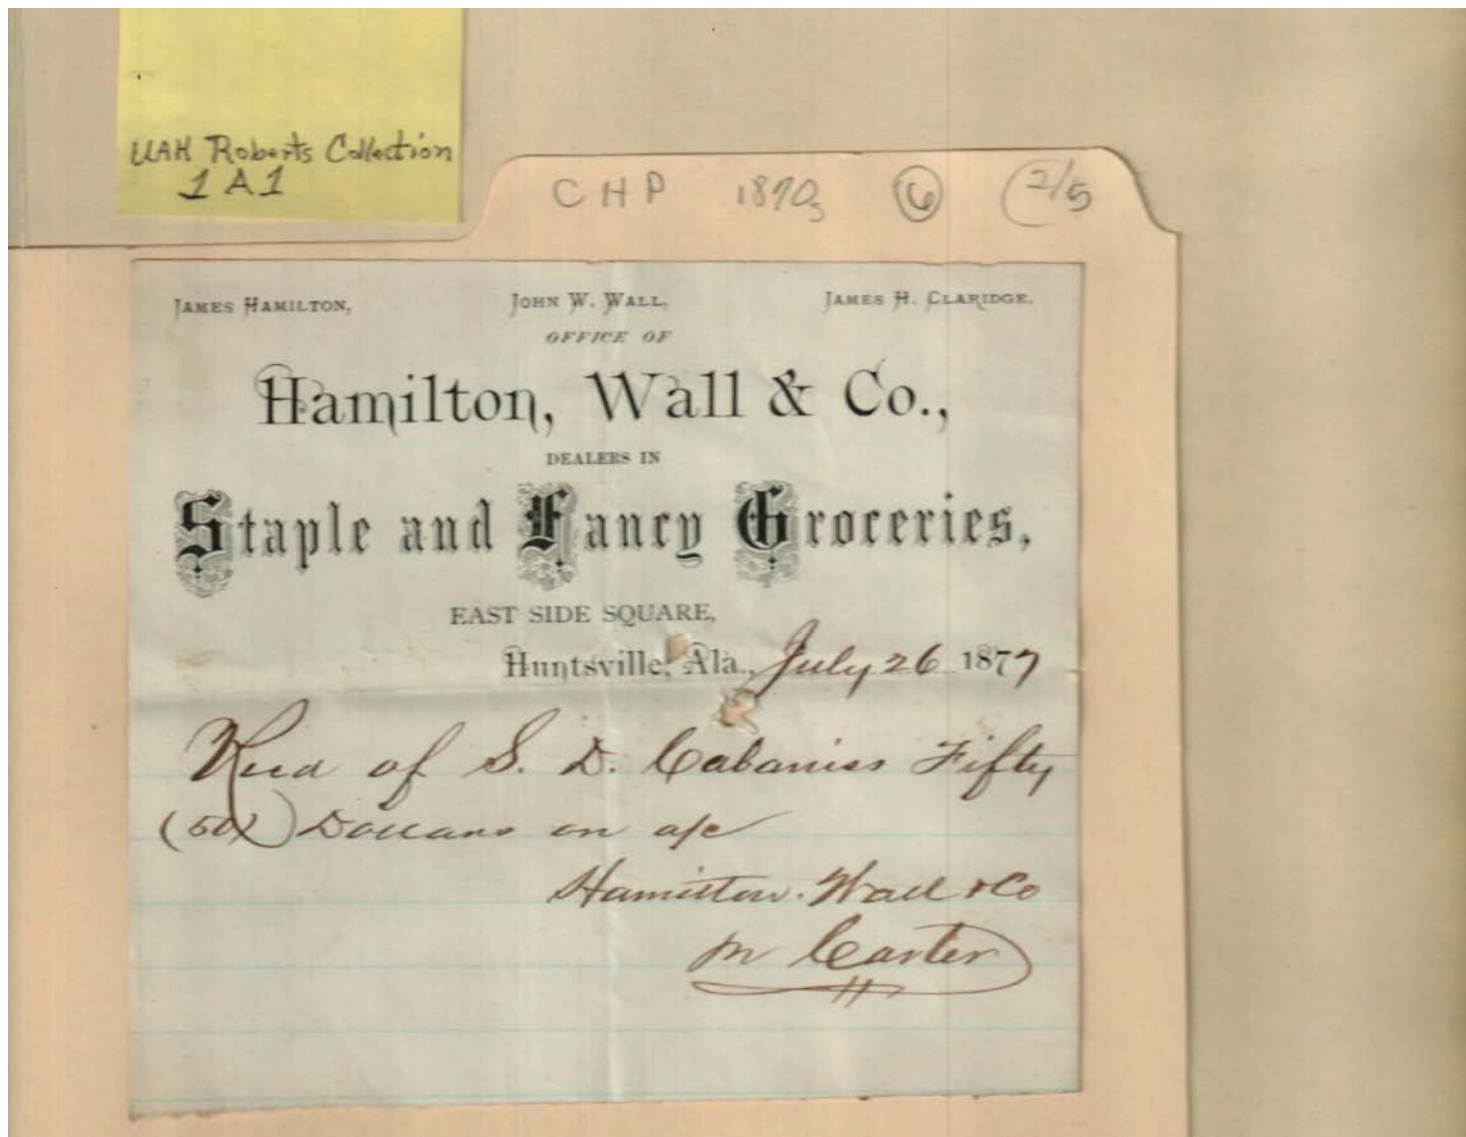 UAH Roberts Collection
1 A 1
CHP 1870s 6 (2/5
JAMES HAMILTON, JOHN W. WALL, JAMES H. CLARIDGE.
OFFICE OF
Hamilton, Wall & Co.,
DEALERS IN
Staple and Fancy Groceries,
EAST SIDE SQUARE,
Huntsville, Ala., July 26 1877
Recd of S. D. Cabaniss Fifty
(50) Dollars on a/c
Hamilton. Wall & Co
Carter